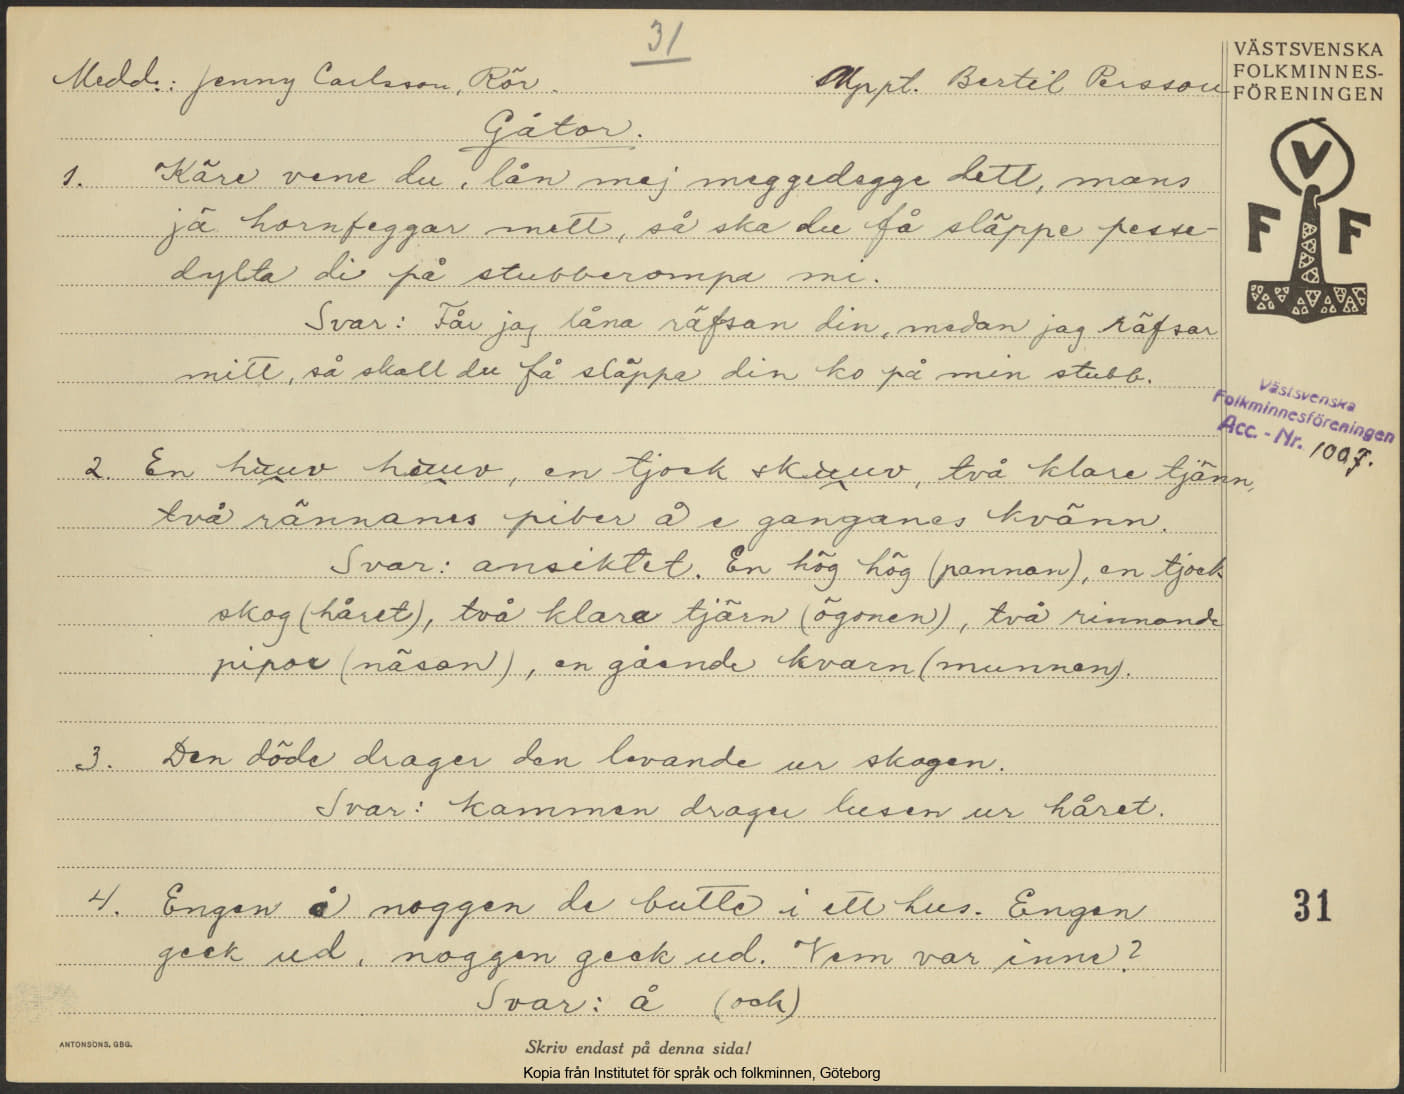 31
Medd.: Jenny Carlsson, Rör. Uppt. Bertil Persson
Gåtor.
1. Käre vene du, lån mej meggedegge dett, mens
jä hornfeggar mett, så ska du få släppe pesse-
dylta di på stubberompa mi.
Svar: Får jag låna räfsan din, medan jag räfsar
mitt, så skall du få släppa din ko på min stubb.
2. En huuv huuv, en tjock skuuv, två klare tjänn,
två rännanes piber å e ganganes kvänn.
Svar: ansiktet. En hög hög (pannan), en tjock
skog (håret), två klara tjärn (ögonen), två rinnande
pipor (näsan), en gående kvarn (munnen).
3. Den döde drager den levande ur skogen.
Svar: kammen drager lusen ur håret.
4. Engen å noggen de butte i ett hus. Engen
geck ud, noggen geck ud. Vem var inne?
Svar: å (och)
ANTONSONS, GBG.
Skriv endast på denna sida!
Kopia från Institutet för språk och folkminnen, Göteborg
VÄSTSVENSKA
FOLKMINNES-
FÖRENINGEN
V
F F
Västsvenska
Folkminnesföreningen
Acc. - Nr. 1007.
31